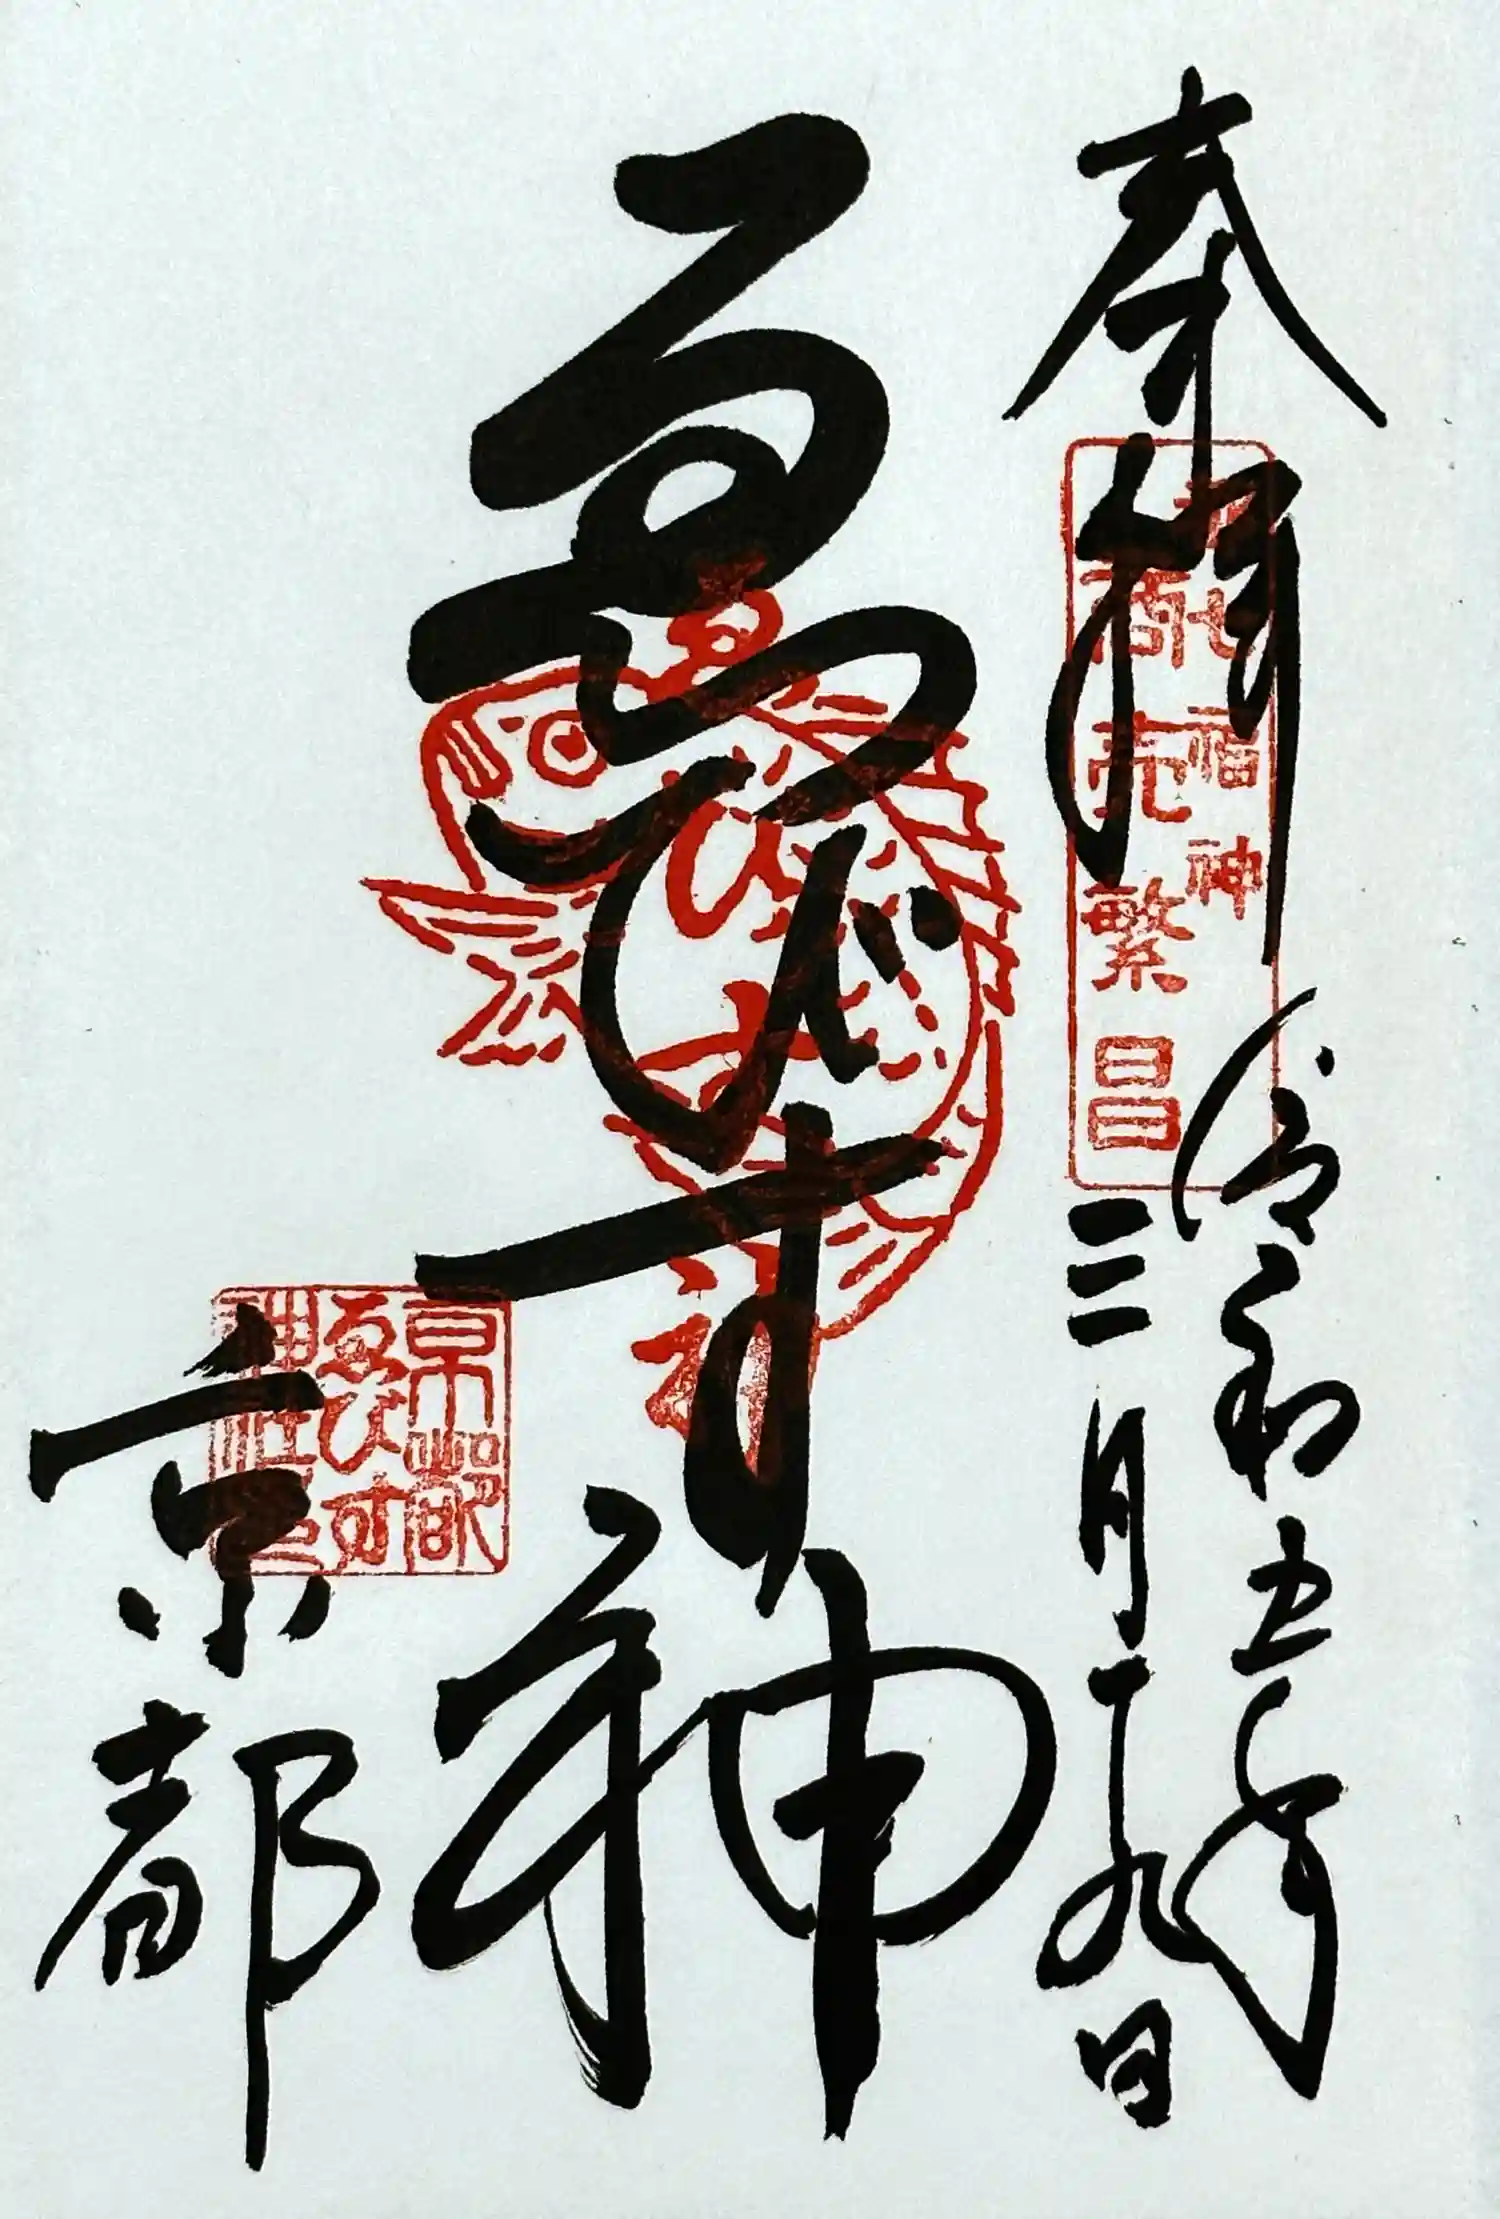 奉拝
令和五年
三月十九日
七福神
商売繁昌
ゑびす神
ゑびす神
京都
京都
ゑびす
神社